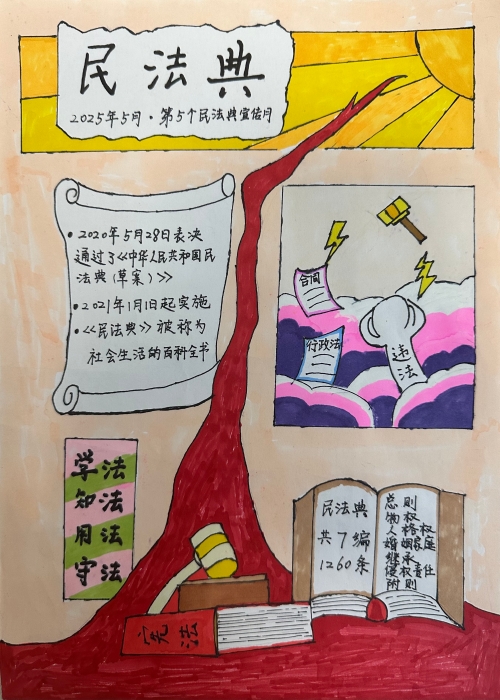 民法典
2025年5月·第5个民法典宣传月
•2020年5月28日表决
通过了《中华人民共和国民
法典(草案)》
•2021年1月1日起实施
•《民法典》被称为
社会生活的百科全书
合同
行政法
违法
学法
知法
用法
守法
民法典
共7编
1260条
总则
物权
人格权
婚姻家庭
继承
侵权责任
附则
宪法